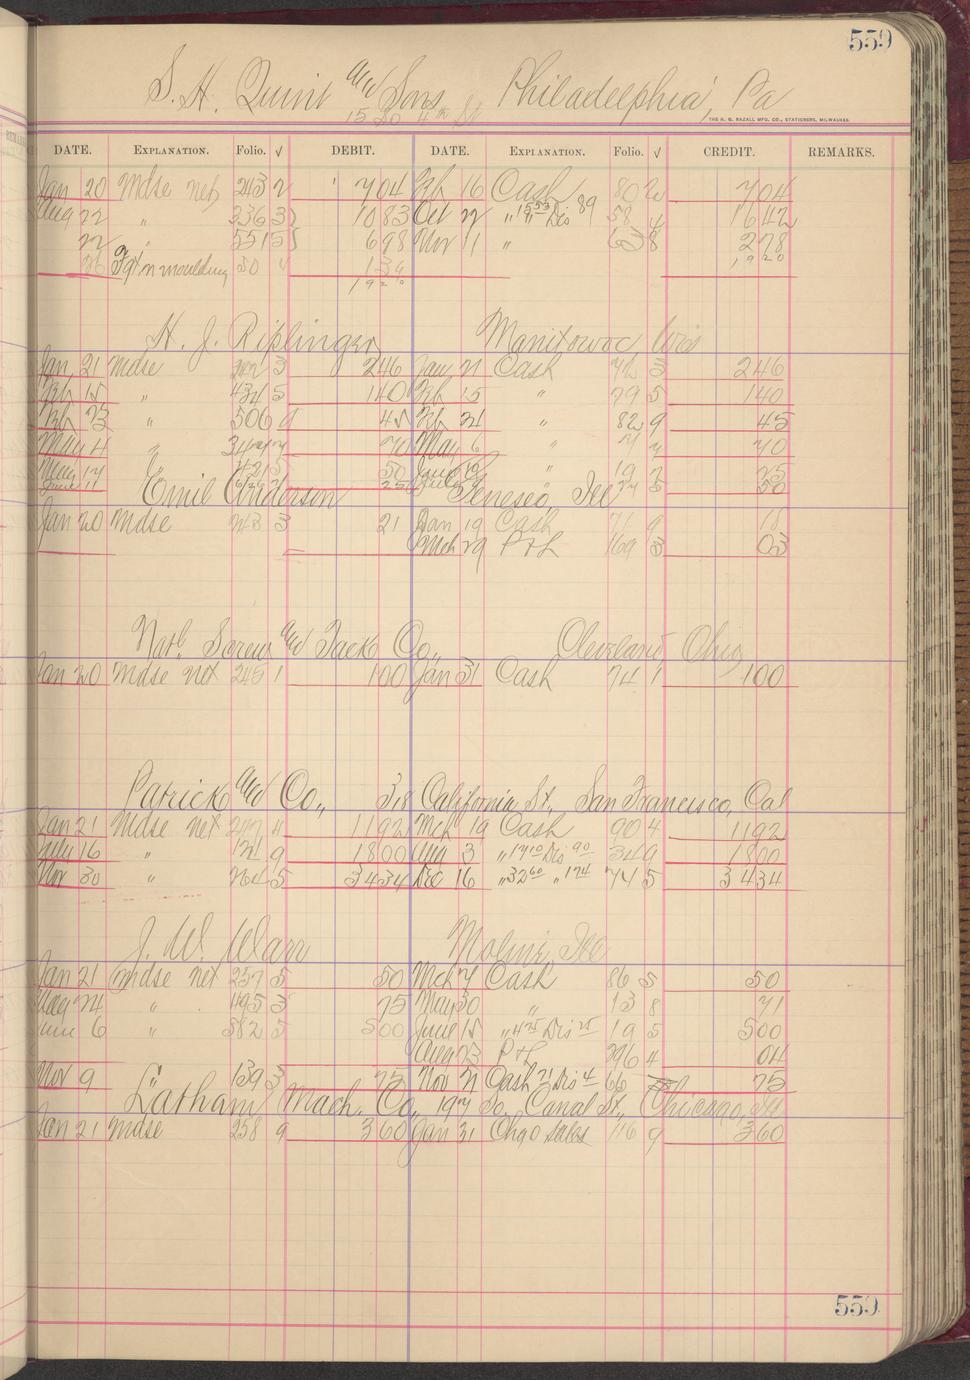 559
S. H. Quint and Sons Philadelphia, Pa
15 So 4th St
THE H. G. RAZALL MFG. CO., STATIONERS, MILWAUKEE.
DATE. EXPLANATION. Folio. √ DEBIT. DATE. EXPLANATION. Folio. √ CREDIT. REMARKS.
Jan 20 Mdse net 243 2 704 Feb 16 Cash 80 2 704
Aug 22 " 236 3 1083 Oct 22 " Dis 89 58 1642
22 " 551 5 698 Nov 11 " 63 8 278
26 moulding 50 139 1920
1920
H. J. Riplinger Manitowoc Wis
Jan 21 Mdse 3 246 Jan 21 Cash 72 3 246
Feb 15 " 434 5 140 Feb 15 " 79 5 140
Feb 23 " 506 9 45 Feb 24 " 82 9 45
May 4 " 344 7 70 May 6 " 7 7 70
May 17 " 421 5 50 June 10 " 19 2 25
June 11 250 July 5 50
Emil Anderson Geneseo Ill
Jan 20 Mdse 243 3 21 Jan 19 Cash 71 9 18
Mch 29 P & L 169 3 03
Natl. Screw and Tack Co., Cleveland, Ohio
Jan 20 Mdse net 245 1 100 Jan 31 Cash 74 1 100
Patrick and Co., 318 California St., San Francisco, Cal
Jan 21 Mdse net 247 4 1192 Mch 19 Cash 90 4 1192
July 16 " 121 9 1800 Aug 3 " 1710 Dis 90 34 9 1800
Nov 30 " 264 5 3434 Dec 16 " 3260 " 174 74 5 3434
J. W. Warr Moline, Ill
Jan 21 Mdse net 257 5 50 Mch 7 Cash 86 5 50
May 24 " 495 3 75 May 30 " 13 8 71
June 6 " 582 5 500 June 15 " 475 Dis 25 19 5 500
Aug 23 P & L 296 4 04
Nov 9 " 139 3 75 Nov 21 Cash 71 Dis 4 66 75
Latham Mach. Co., 197 So. Canal St., Chicago, Ill
Jan 21 Mdse 258 9 360 Jan 31 Chgo Sales 116 9 360
559